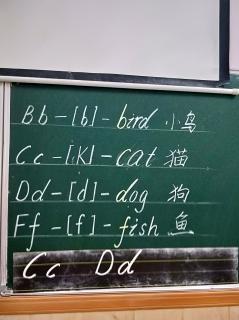 Bb-[b]-bird 小鸟
Cc-[K]-cat 猫
Dd-[d]-dog 狗
Ff-[f]-fish 鱼
Cc Dd